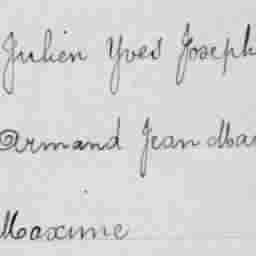 Julien Yves Joseph
Armand Jean Mar
Maxime